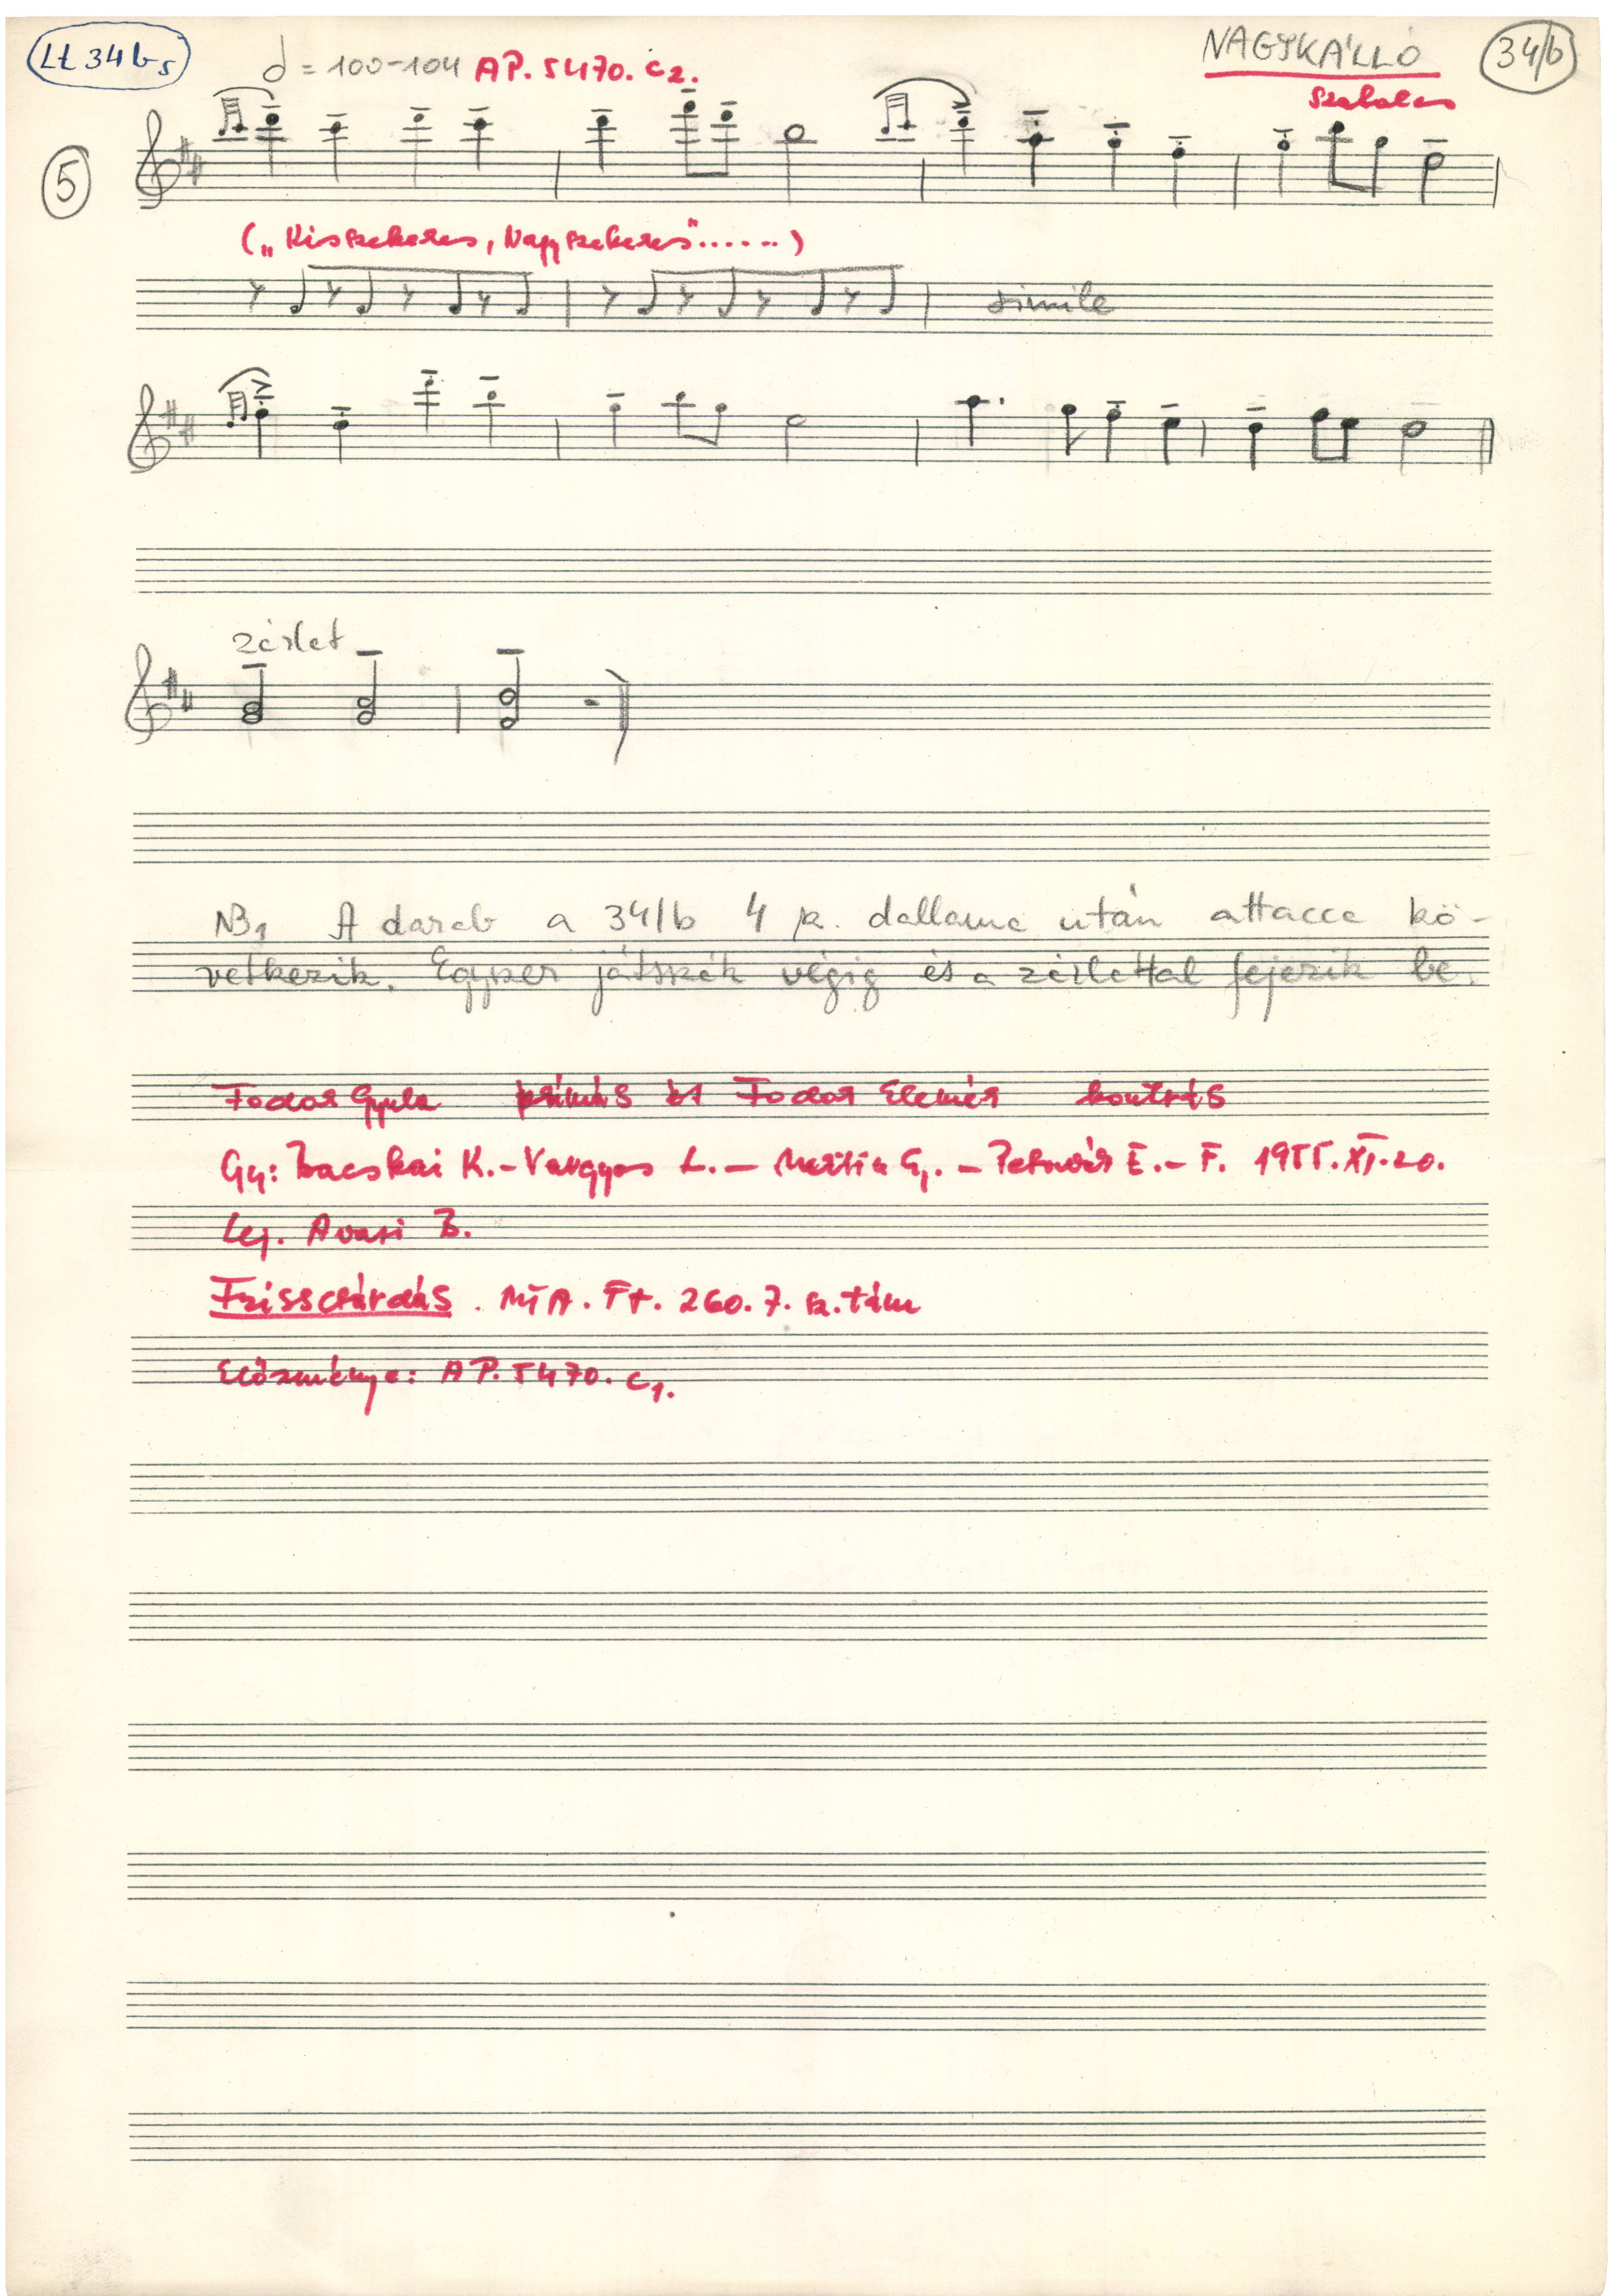 Lt 34b5
= 100-104 AP. 5470. c2.
NAGYKÁLLÓ
34/b
Szabolcs
5
(„Kisszekeres, Nagyszekeres"......)
simile
zárlat
NB1 A darab a 34/b 4 sz. dallama után attacca kö-
vetkezik. Egyszer játsszák végig és a zárlattal fejezik be.
Fodor Gyula prímás és Fodor Elemér kontrás
Gy: Bacskai K. - Vargyas L. - Martin Gy. - Pesovár E. - F. 1955. XI. 20.
Lej. Avasi B.
Frisscsárdás. MTA. Ft. 260. 7. sz. tánc
Előzménye: AP. 5470. c1.